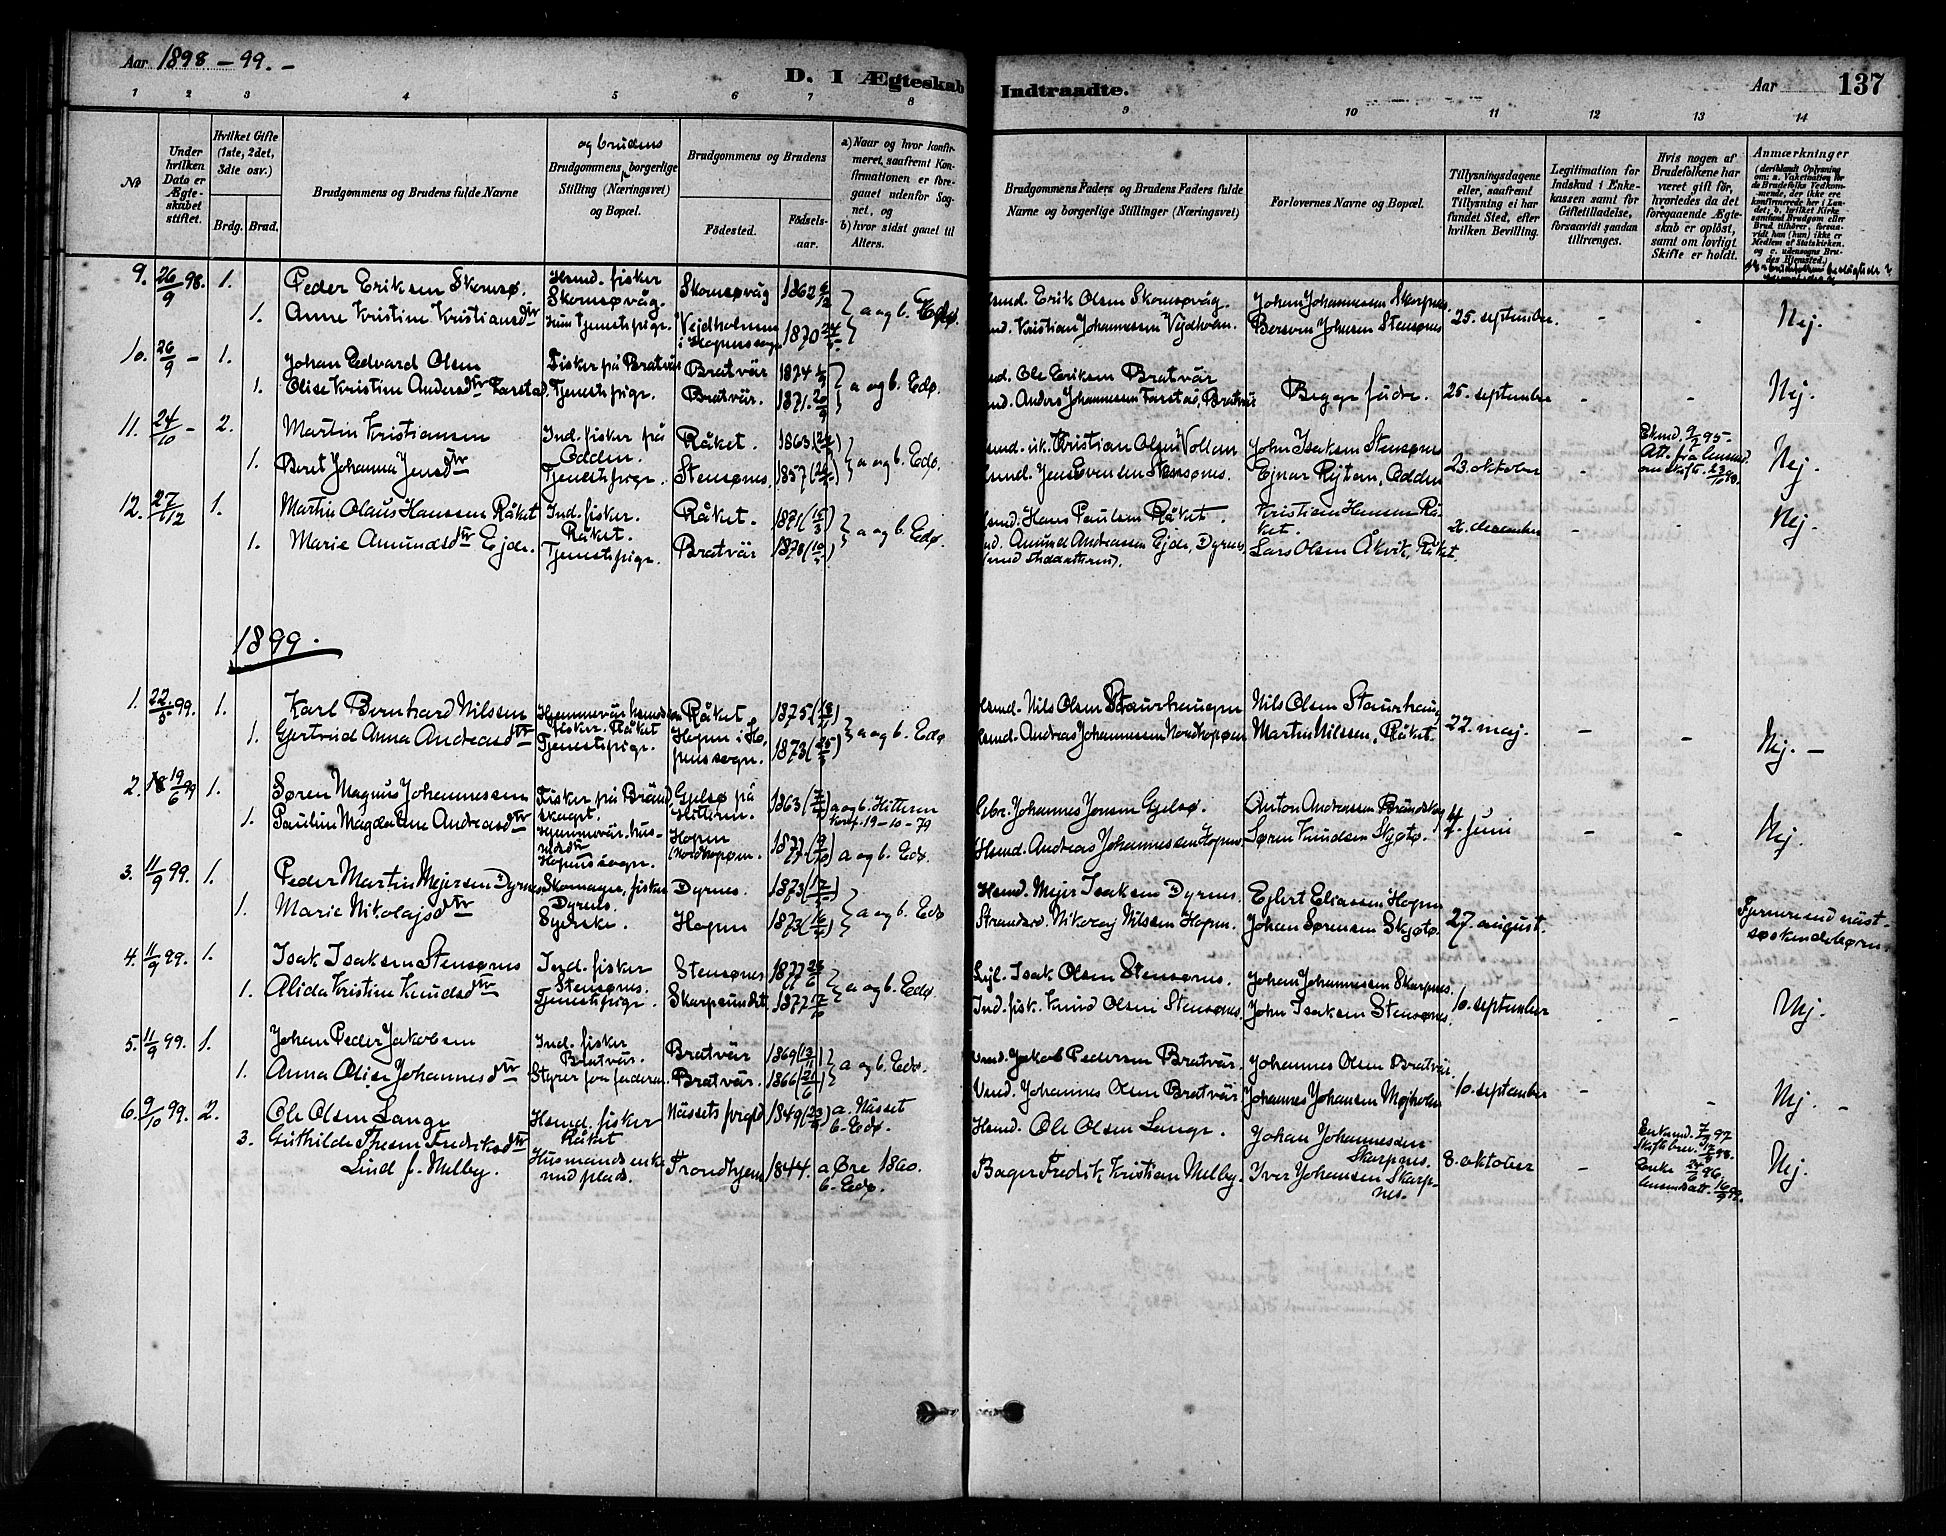 Aar 1898 – 99. –
D. I Ægteskab Indtraadte.
Aar 137
1 2 3 4 5 6 7 8 9 10 11 12 13 14
No
Under hvilken Dato er Ægteskabet stiftet.
Hvilket Gifte (1ste, 2det, 3die osv.)
Brdg. Brud.
Brudgommens og Brudens fulde Navne
og brudens
Brudgommens borgerlige Stilling (Næringsvei) og Bopæl.
Brudgommens og Brudens
Fødested.
Fødselsaar.
a) Naar og hvor konfirmeret, saafremt Konfirmationen er foregaaet udenfor Sognet, og
b) hvor sidst gaaet til Alters.
Brudgommens Faders og Brudens Faders fulde Navne og borgerlige Stillinger (Næringsvei)
Forlovernes Navne og Bopæl.
Tillysningsdagene eller, saafremt Tillysning ei har fundet Sted, efter hvilken Bevilling.
Legitimation for Indskud i Enkekassen samt for Giftetilladelse, forsaavidt saadan tiltrænges.
Hvis nogen af Brudefolkene har været gift før, hvorledes da det foregaaende Ægteskab er opløst, samt om lovligt Skifte er holdt.
Anmærkninger
9. 26/9 98. 1. Peder Eriksen Skomsø. Hsmd. fisker Skomsøvåg. Skomsøvåg 1862 } a og b. Edø. Hsmd. Erik Olsen Skomsøvåg. Johan Johannessen Skarpnes. 25. september. – – Nej.
1. Anne Kristine Kristiansdtr Tjenestepige. Vejdholmen i Hopens sogn 1870 Kristian Johannessen Vejdholm. Bersvein Johnsen Stensønes
10. 26/9 – 1. Johan Edvard Olsen Fisker på Bratvär Bratvär 1874 } a og b. Edø. Ole Eriksen Bratvär Begge fædre. 25. september – – Nej.
1. Olise Kristine Andersdtr Farstad. Tjenestepige. Bratvär. 1871. 20/9 Anders Johannessen Farstad, Bratvär
11. 24/10 – 2. Martin Kristiansen Ind. fisker på Odden. Råket. 1863 } a og b. Edø. Kristian Olsen Vollan John Isaksen Stensønes 23. oktober – Nej.
1. Beret Johanna Jensdtr Tjenestepige. Stensønes. 1857 Jens Evensen Stensønes. Ejnar Rijtan, Odden
12. 27/12 1. Martin Olaus Hansen Råket Ind. fisker. Råket. Råket. 1871 (15/3) } a og b. Edø. Hans Paulsen Råket. Kristian Hansen Råket. 26. december – – Nej.
1. Marie Amundsdtr Ejde. Tjenestepige. Bratvär 1878 Amund Andreassen Ejde, Dyrnes Lars Olsen Åkvik, Råket.
1899.
1. 22/5 99. 1. Karl Bernhard Nilssen fisker. Råket Råket 1875 } a og b. Edø Hsmd. Nils Olsen Staurhaugen Nils Olsen Staurhaug 22. maj. – – Nej. –
1. Gjertrud Anna Andreasdtr Tjenestepige. Hopen i Hopens sogn. 1873 Hsmd. Andreas Johannessen Nordhopøen Martin Nilssen, Råket.
2. 19/6 99 1. Søren Magnus Johannessen Fisker på Brandskaget. Gjelsø på Hitteren. 1863 a og b. Hitteren konf. 19–10–79 Johannes Jonsen Gjelsø. Anton Andreassen Brandskag 4. juni – – Nej.
1. Pauline Magdalene Andreasdtr Hjemmevär. husmdsdtr Hopens sogn. Hopen Nordhopøen. 1877 a og b. Edø. Hsmd. Andreas Johannessen Hopen. Søren Knudsen Skjøtø.
3. 11/9 99. 1. Peder Martin Mejersen Dyrnes Skomager, fisker Dyrnes. Dyrnes. 1873 } a og b. Edø Hsmd. Mejer Isaksen Dyrnes. Ejlert Eliassen Hopen 27. august. – – Fjermere end näst-søskendebørn.
1. Marie Nikolajsdtr Syerske. Hopen 1873 Strandsd. Nikolaj Nilssen Hopen. Johan Sørensen Skjøtø.
4. 11/9 99. 1. Isak Isaksen Stensønes Ind. fisker Stensønes. Stensønes 1877 } a og b. Edø Isak Olsen Stensønes. Johan Johannessen Skarpnes. 10. september – – Nej.
1. Alida Kristine Knudsdtr Tjenestepige. Skarpsundet 1872 Ind. fisk. Knud Olsen Stensønes. John Isaksen Stensønes.
5. 11/9 99. 1. Johan Peder Jakobsen Ind. fisker Bratvär. Bratvär 1869 } a og b. Edø. Jakob Pedersen Bratvär Johannes Olsen Bratvär. 10. september – – Nej. –
1. Anna Olise Johannesdtr Styrer for faderen. Bratvär. 1866 Johannes Olsen Bratvär Johannes Johansen Mejholm
6. 9/10 99. 2. Ole Olsen Lange Hsmd. fisker Råket Nässets prgld 1849 a. Nässet b. Edø. Hsmd. Ole Olsen Lange. Johan Johannessen Skarpnes. 8. oktober – Enkemd. 97 Skiftebrev. 98. Nej.
3. Guthilde Fredriksdtr Lind f. Melby. Husmandsenke med plads. Trondhjem 1844. a Øre 1860. b. Edø. Bager Fredrik Kristian Melby. Iver Johansen Skarpnes. Enke 24/6 96.